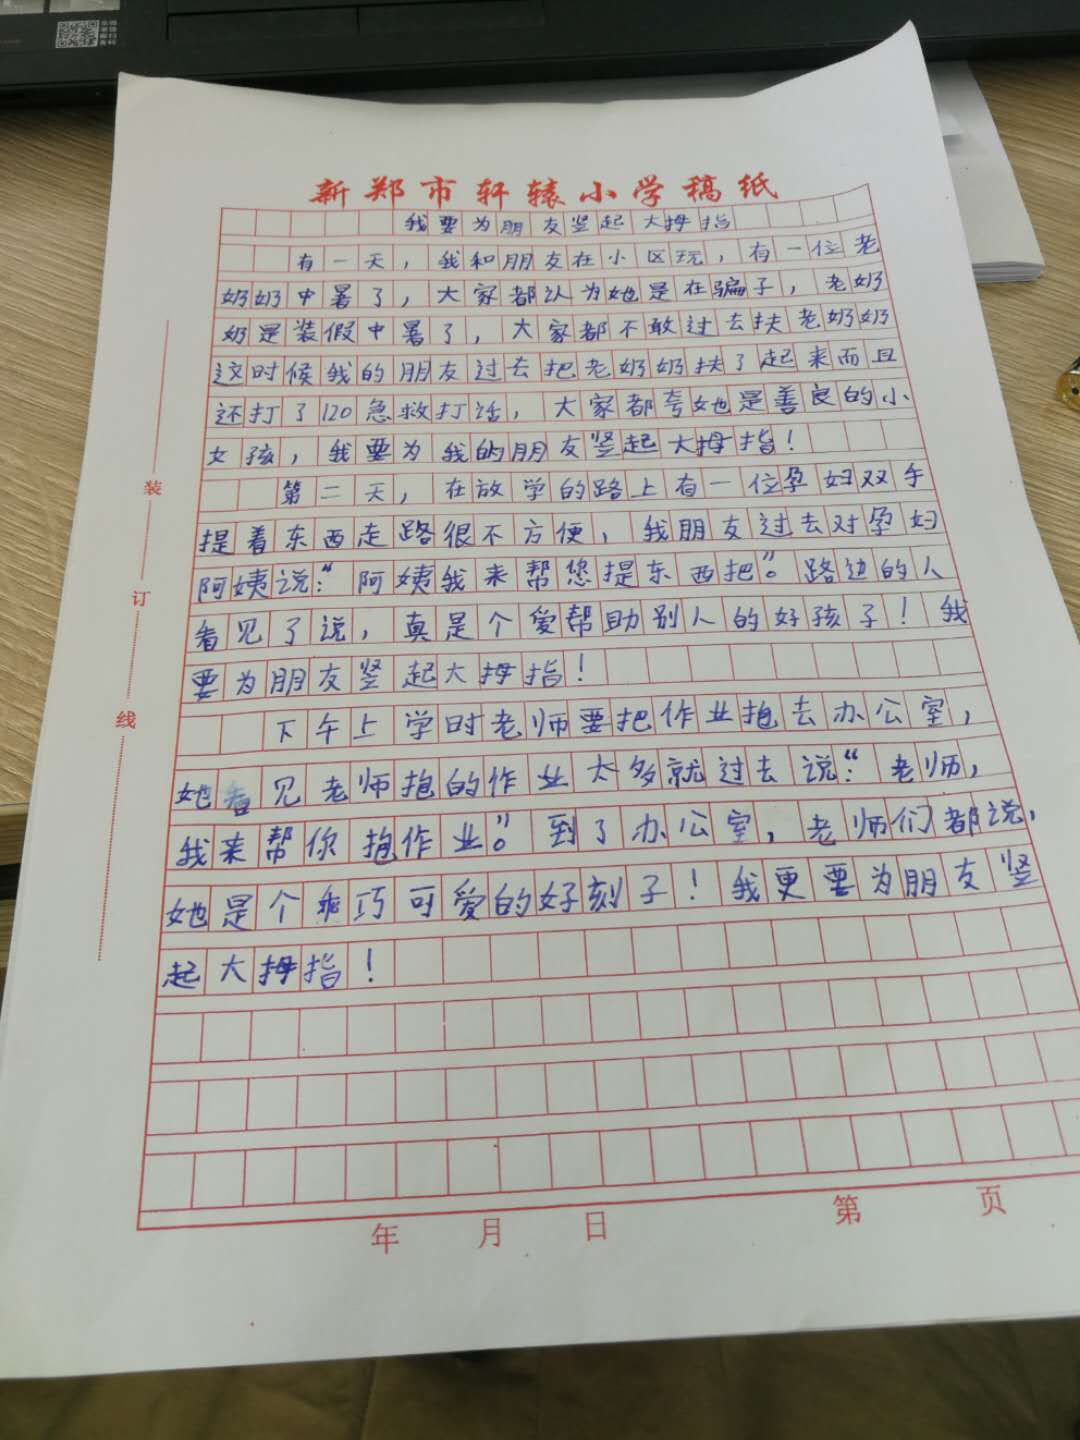 新郑市轩辕小学稿纸
我要为朋友竖起大拇指
有一天，我和朋友在小区玩，有一位老
奶奶中暑了，大家都认为她是在骗子，老奶
奶是装假中暑了，大家都不敢过去扶老奶奶
这时候我的朋友过去把老奶奶扶了起来而且
还打了120急救打话，大家都夸她是善良的小
女孩，我要为我的朋友竖起大拇指！
第二天，在放学的路上有一位孕妇双手
提着东西走路很不方便，我朋友过去对孕妇
阿姨说：“阿姨我来帮您提东西把”。路边的人
看见了说，真是个爱帮助别人的好孩子！我
要为朋友竖起大拇指！
下午上学时老师要把作业抱去办公室，
她看见老师抱的作业太多就过去说：“老师，
我来帮你抱作业”。到了办公室，老师们都说，
她是个乖巧可爱的好刻子！我更要为朋友竖
起大拇指！
装
订
线
年 月 日 第 页